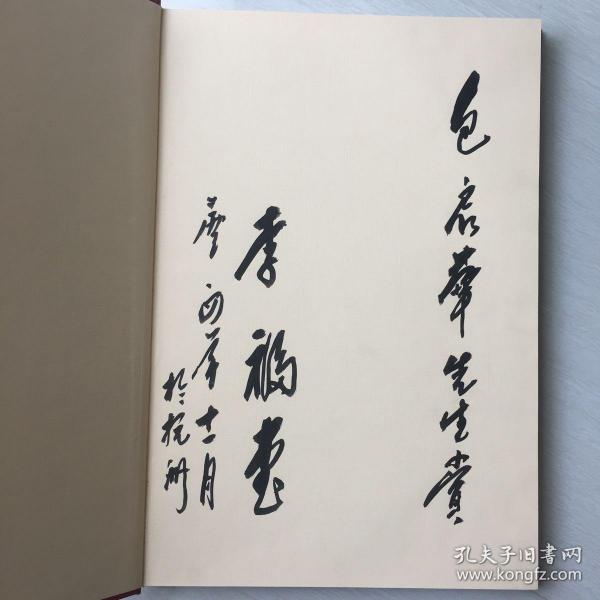 包启華先生賞
李福
零四年十一月
於杭州
孔夫子旧书网
www.kongfz.com